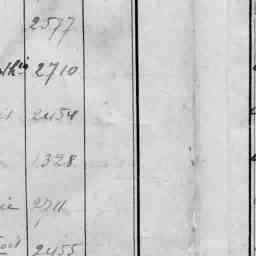 2577
2710
2454
1328
2711
2455